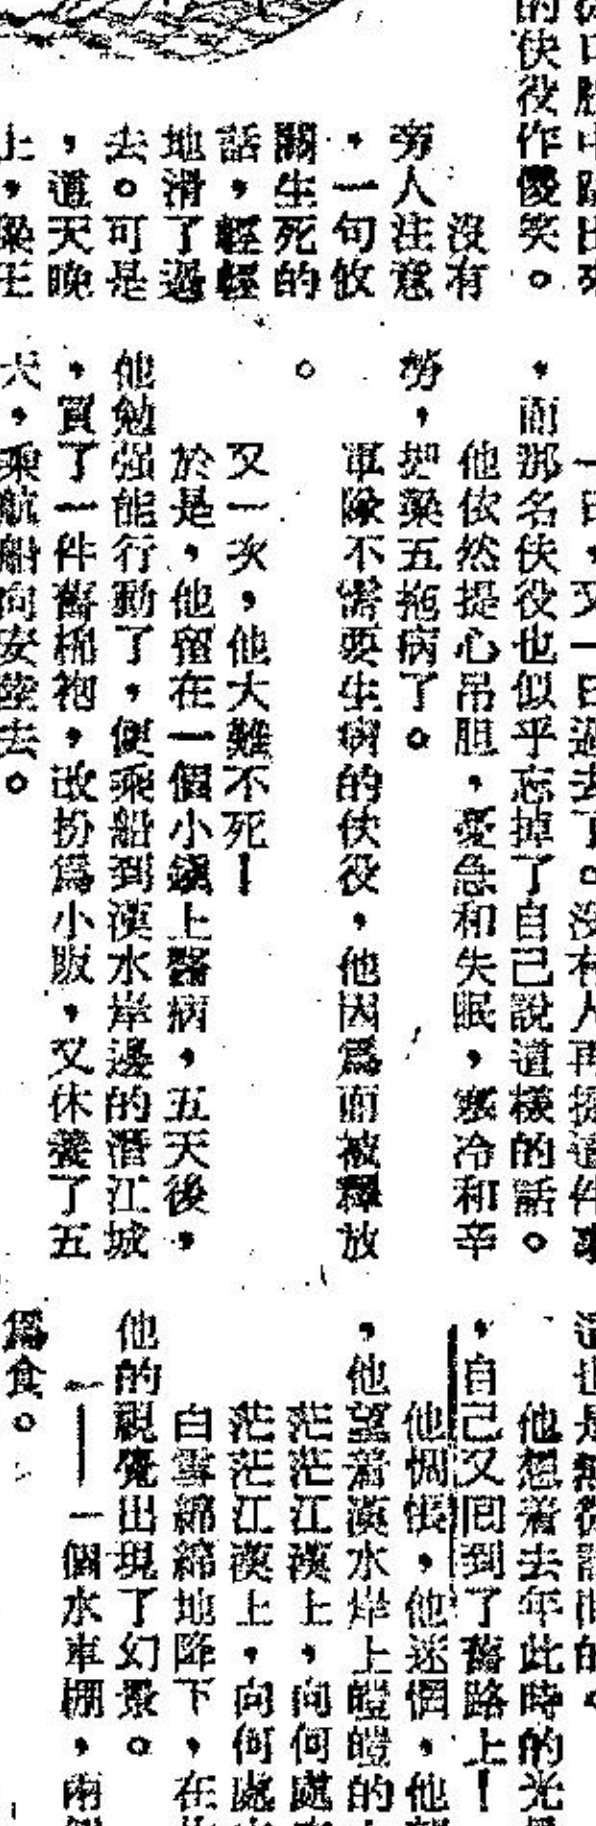 的伕役作儍笑。
沒有
旁人注意
，一句攸
關生死的
話，輕輕
地滑了過
去。可是
，這天晚
上，梁
一日，又一日過去了。沒有人再提這件事
，而那名伕役也似乎忘掉了自己說這樣的話。
他依然提心吊胆，憂急和失眠，寒冷和辛
勞，把梁五拖病了。
軍隊不需要生病的伕役，他因爲而被釋放
。
又一次，他大難不死！
於是，他留在一個小鎭上醫病，五天後，
他勉强能行動了，便乘船到漢水岸邊的潛江城
，買了一件舊棉袍，改扮爲小販，又休養了五
天，乘航船向安陸去。
這也是無從
他想着去年此時的光
，自己又囘到了舊路上！
他惆悵，他迷惘，他
，他望着漢水岸上皚皚的
茫茫江漢上，向何處
茫茫江漢上，向何處
白雪綿綿地降下，在
他的視覺出現了幻景。
一——一個水車棚，兩
爲食。